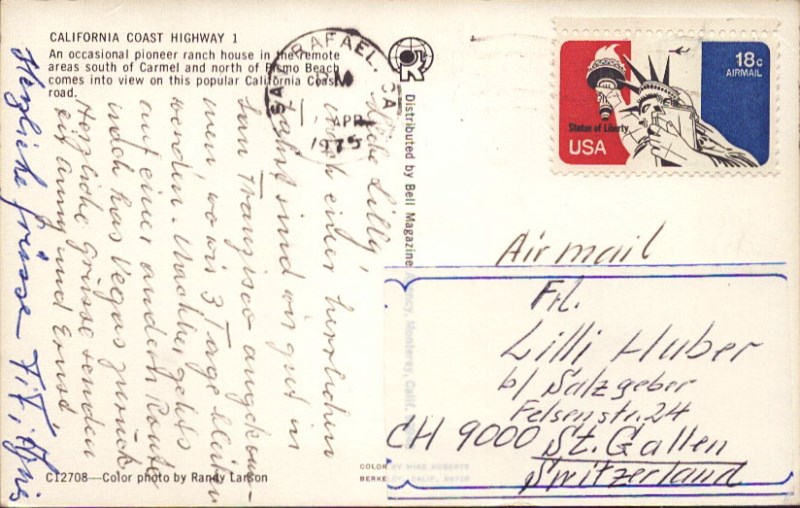 CALIFORNIA COAST HIGHWAY 1
An occasional pioneer ranch house in the remote
areas south of Carmel and north of Pismo Beach
comes into view on this popular California Coast
road.
SAN RAFAEL, CA
M
APR
1975
18c
AIRMAIL
Statue of Liberty
USA
Distributed by Bell Magazine Agency, Monterey, Calif.
Liebe Lilly,
nach einer herrlichen
Fahrt sind wir gut in
San Franzisco angekom-
men, wo wir 3 Tage bleiben
werden. Nachher gehts
auf einer andern Route
nach Las Vegas zurück
Herzliche Grüsse senden
Anny und Ernst.
Herzliche Grüsse
Air mail
Frl.
Lilli Huber
b/ Salzgeber
Felsenstr. 24
CH 9000 St. Gallen
Switzerland
COLOR BY MIKE ROBERTS
BERKELEY, CALIF. 94710
C12708—Color photo by Randy Larson